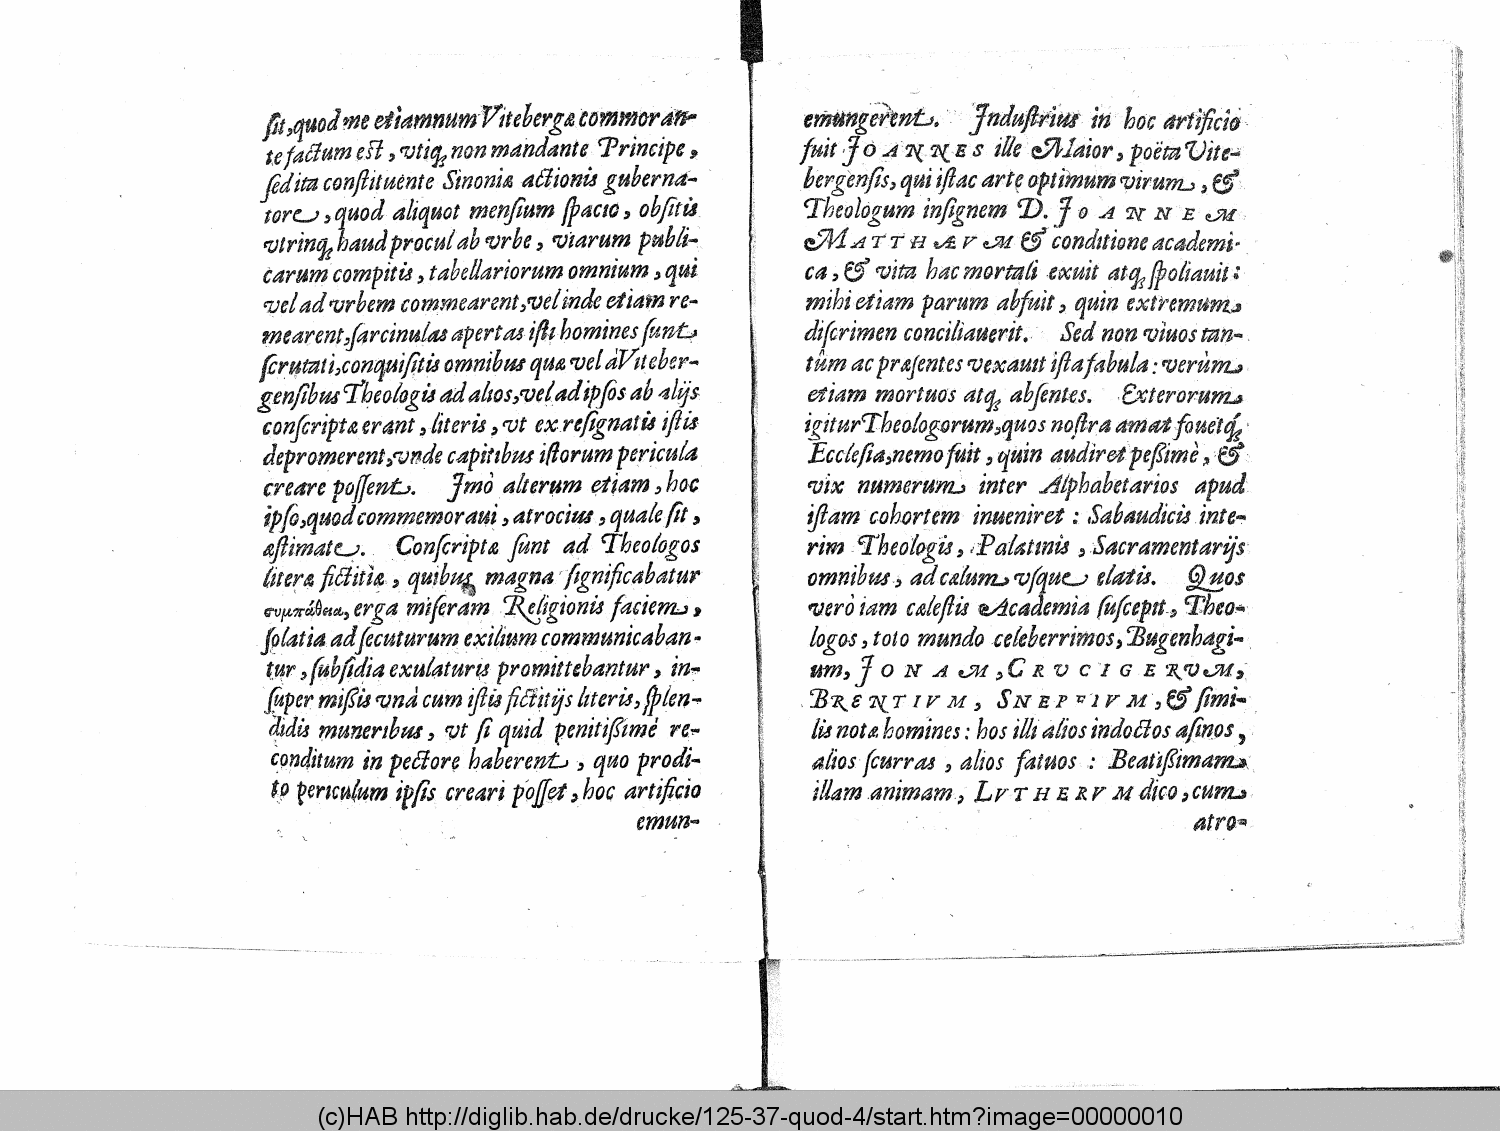 ſit, quod me etiamnum Vitebergæ commoran-
te factum est, vtiq; non mandante Principe,
ſed ita conſtituente Sinoniæ actionis guberna-
tore, quod aliquot menſium ſpacio, obſitis
vtrinq; haud procul ab vrbe, viarum publi-
carum compitis, tabellariorum omnium, qui
vel ad vrbem commearent, vel inde etiam re-
mearent, ſarcinulas apertas iſti homines ſunt
ſcrutati, conquiſitis omnibus quæ vel à Viteber-
genſibus Theologis ad alios, vel ad ipſos ab alijs
conſcriptæ erant, literis, vt ex reſignatis iſtis
depromerent, vnde capitibus iſtorum pericula
creare poſſent. Imò alterum etiam, hoc
ipſo, quod commemoraui, atrocius, quale ſit,
æſtimate. Conſcriptæ ſunt ad Theologos
literæ fictitiæ, quibus magna ſignificabatur
συμπάθεια, erga miſeram Religionis faciem,
ſolatia ad ſecuturum exilium communicaban-
tur, ſubſidia exulaturis promittebantur, in-
ſuper mißis vnà cum iſtis fictitijs literis, ſplen-
didis muneribus, vt ſi quid penitißimè re-
conditum in pectore haberent, quo prodi-
to periculum ipſis creari poſſet, hoc artificio
emun-
emungerent. Induſtrius in hoc artificio
fuit IOANNES ille Maior, poëta Vite-
bergenſis, qui iſtac arte optimum virum, &
Theologum inſignem D. IOANNEM
MATTHÆVM & conditione academi-
ca, & vita hac mortali exuit atq; ſpoliauit:
mihi etiam parum abfuit, quin extremum
diſcrimen conciliauerit. Sed non viuos tan-
tùm ac præſentes vexauit iſta fabula: verùm
etiam mortuos atq; abſentes. Exterorum
igitur Theologorum, quos noſtra amat fouetq́;
Eccleſia, nemo fuit, quin audiret peßimè, &
vix numerum inter Alphabetarios apud
iſtam cohortem inueniret: Sabaudicis inte-
rim Theologis, Palatinis, Sacramentarijs
omnibus, ad cælum vſque elatis. Quos
verò iam cæleſtis Academia ſuſcepit, Theo-
logos, toto mundo celeberrimos, Bugenhagi-
um, IONAM, CRVCIGERVM,
BRENTIVM, SNEPFIVM, & ſimi-
lis notæ homines: hos illi alios indoctos aſinos,
alios ſcurras, alios fatuos: Beatißimam
illam animam, LVTHERVM dico, cum
atro-
(c)HAB http://diglib.hab.de/drucke/125-37-quod-4/start.htm?image=00000010